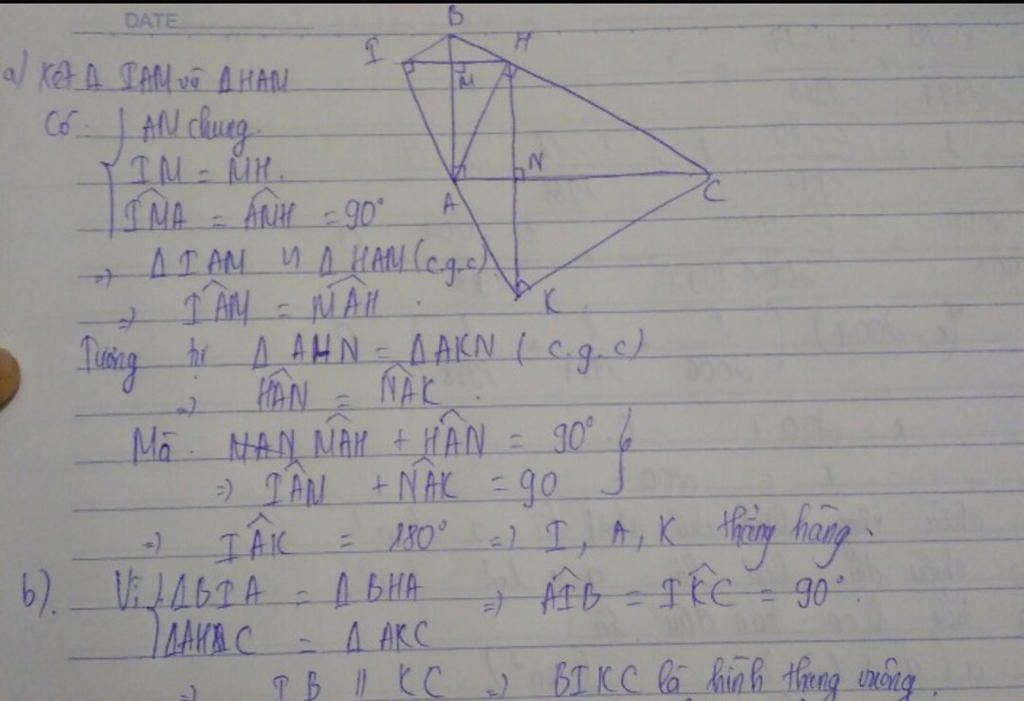 DATE
B
I
H
M
a) Xét Δ IAM và ΔHAM
Có: { AM chung.
IM = MH.
N
C
A
K
IMA = AMH = 90°
=> Δ IAM = Δ HAM (c.g.c)
=> IAM = MAH.
Tương tự Δ AHN = ΔAKN (c.g.c)
=> HAN = NAK.
Mà MAH + HAN = 90° }
=> IAM + NAK = 90
=> IAK = 180° => I, A, K thẳng hàng.
b). Vì { ΔBIA = Δ BHA => AIB = IKC = 90°.
ΔAHC = Δ AKC
=> IB // KC => BIKC là hình thang vuông.